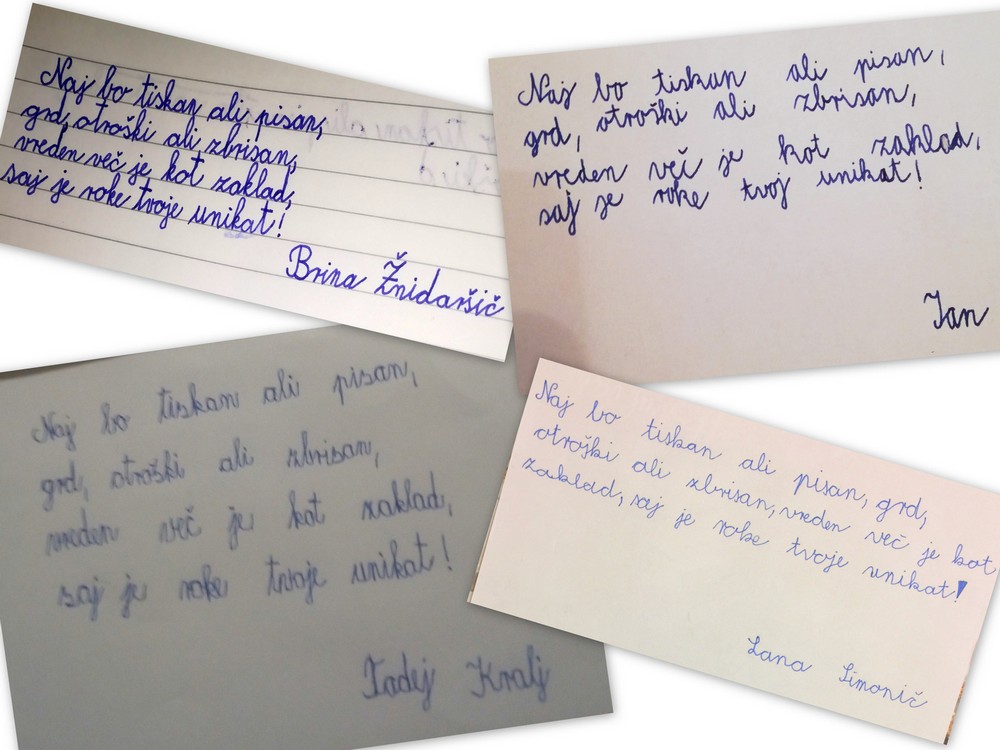 Naj bo tiskan ali pisan,
grd, otroški ali zbrisan,
vreden več je kot zaklad,
saj je roke tvoje unikat!
Brina Žnidaršič
Naj bo tiskan ali pisan,
grd, otroški ali zbrisan,
vreden več je kot zaklad,
saj je roke tvoj unikat!
Jan
Naj bo tiskan ali pisan,
grd, otroški ali zbrisan,
vreden več je kot zaklad,
saj je roke tvoje unikat!
Tadej Kralj
Naj bo tiskan ali pisan, grd,
otroški ali zbrisan, vreden več je kot
zaklad, saj je roke tvoje unikat!
Lana Simonič